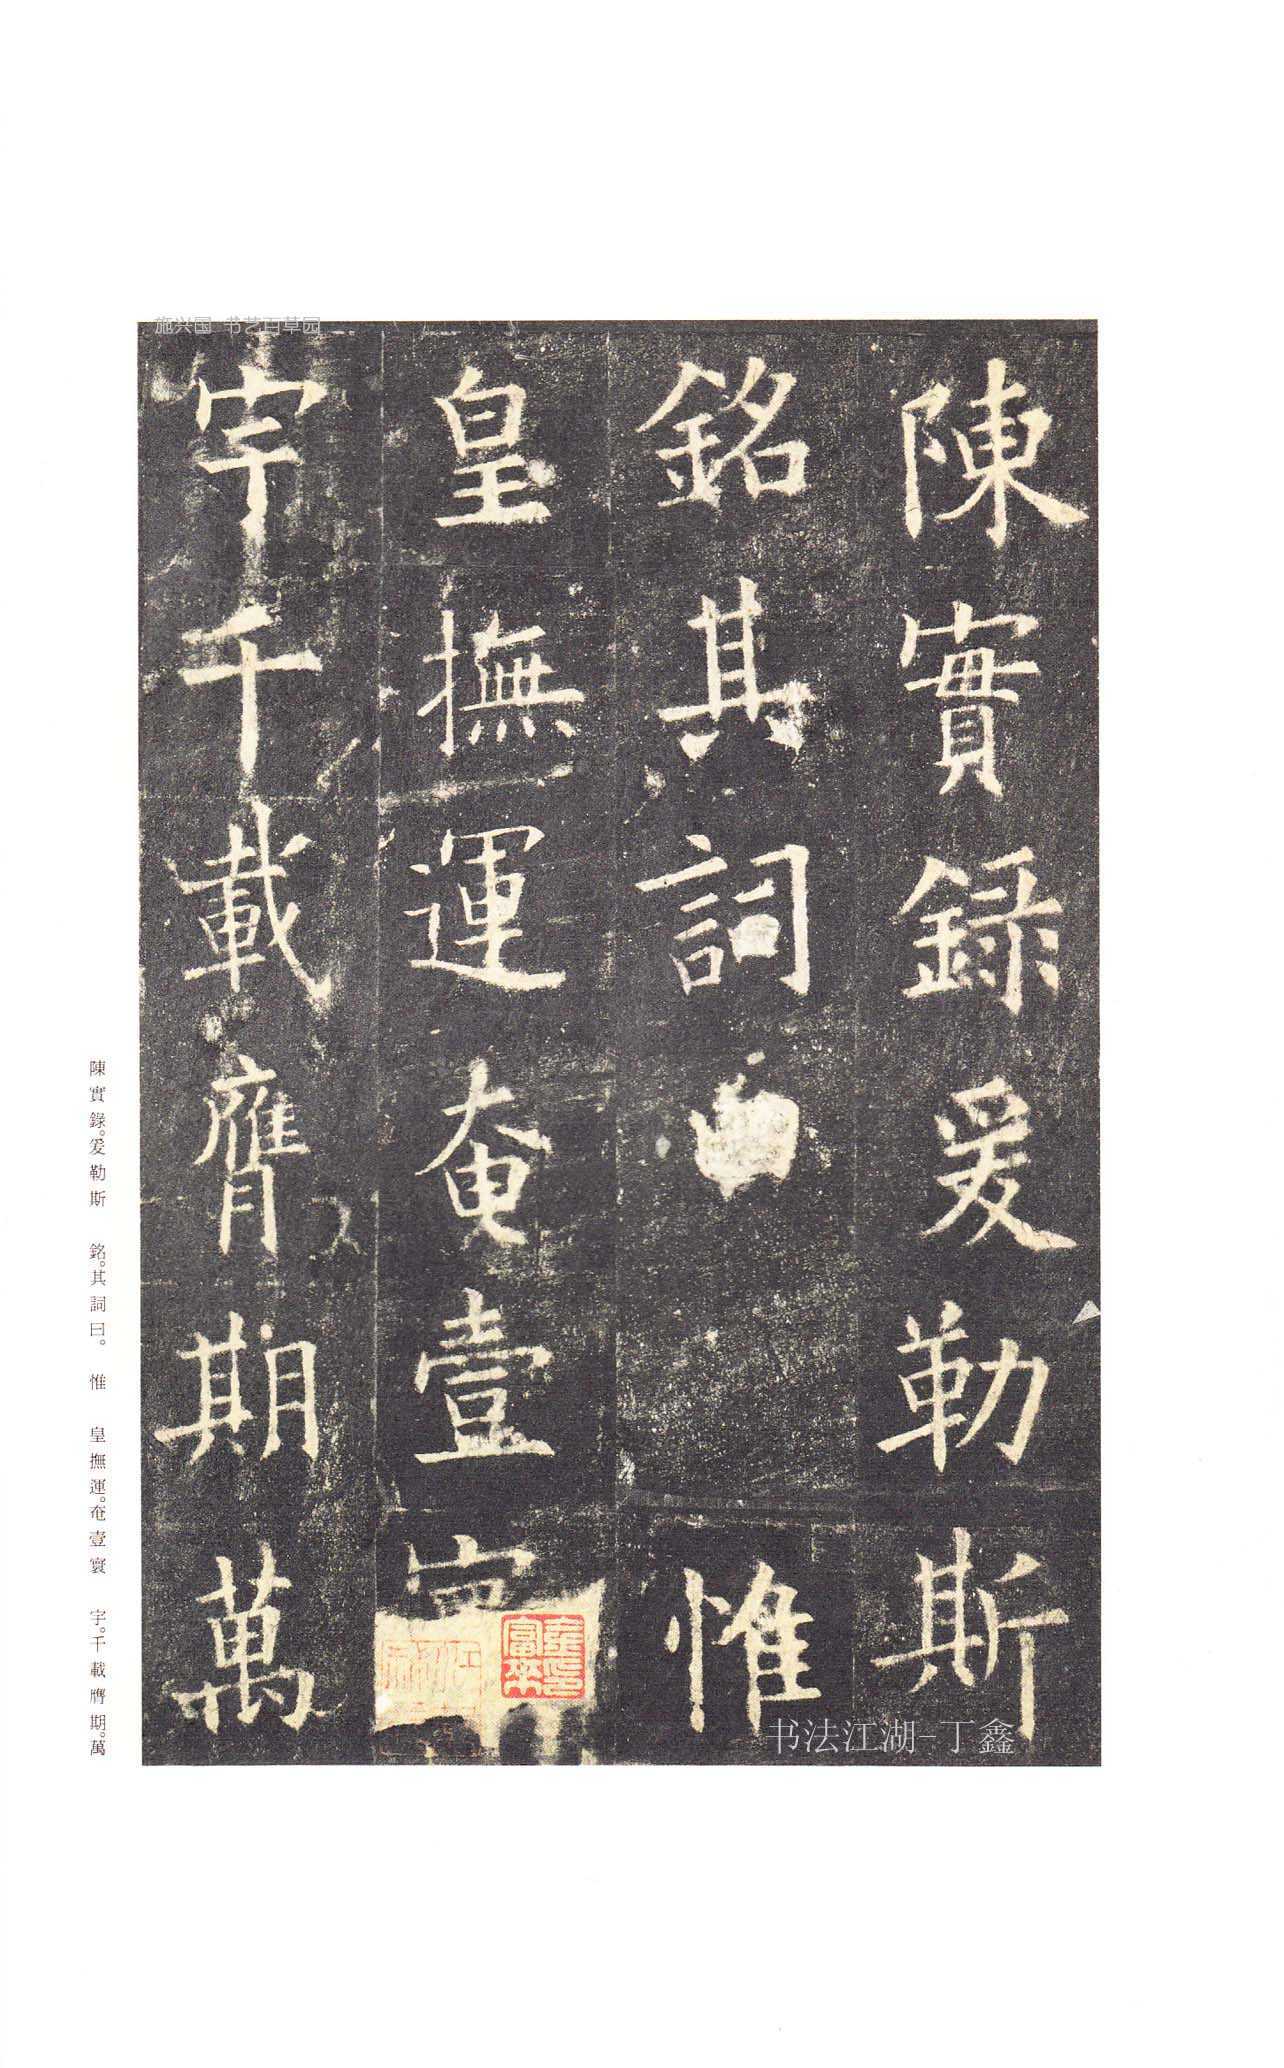 施兴国 书艺百草园
陳實錄爰勒斯
銘其詞曰 惟
皇撫運奄壹寰
宇千載膺期萬
陳實錄。爰勒斯 銘。其詞曰。 惟 皇撫運。奄壹寰 宇。千載膺期。萬
书法江湖-丁鑫